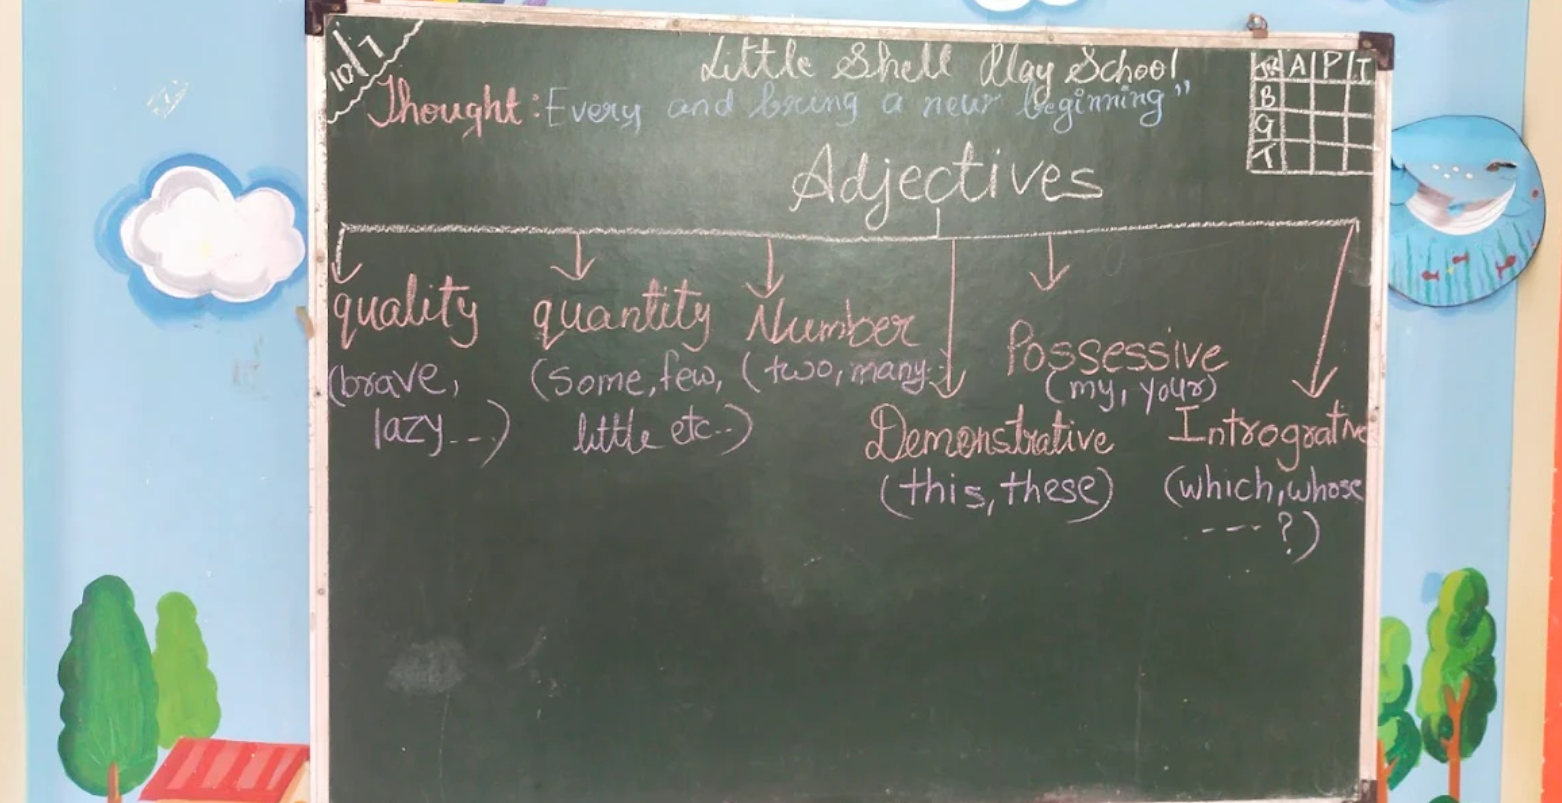 10/7
Little Shell Play School
Thought: Every and bring a new beginning"
A P T
B
G
T
Adjectives
quality
(brave,
lazy ---)
quantity
(Some, few,
little etc..)
Number
(two, many..)
Demonstrative
(this, these)
Possessive
(my, your)
Introgrative
(which, whose
---- ?)